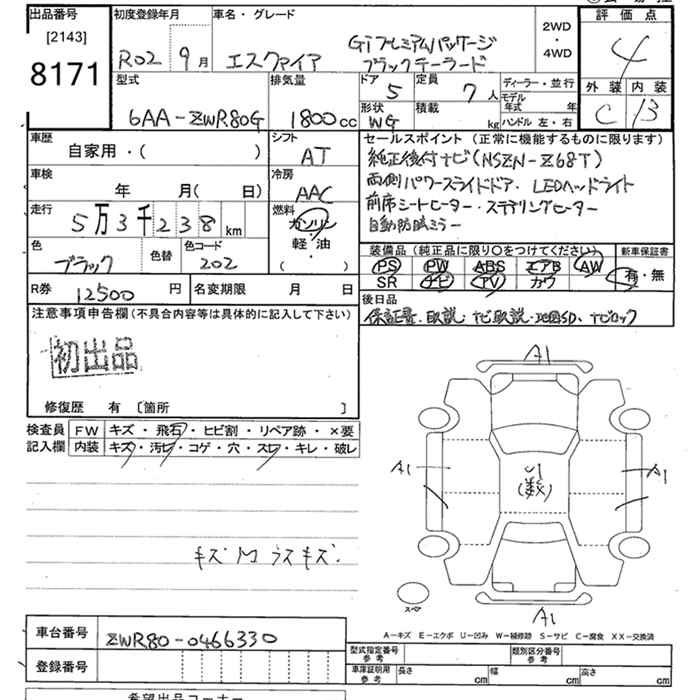 出品番号
[2143]
8171
初度登録年月
R02 9月
車名・グレード
エスクァイア
Giプレミアムパッケージ
ブラックテーラード
2WD
・
4WD
評価点
4
外装 内装
C B
型式
6AA-ZWR80G
排気量
1800cc
ドア 5
定員 7人
形状 WG
積載 kg
ディーラー・並行
モデル年式 年
ハンドル 左・右
車歴
自家用・( )
シフト
AT
車検
年 月( 日)
冷房
AAC
走行
5万3千238 km
燃料
ガソリン
軽・油
( )
色
ブラック
色替
色コード
202
R券 12500 円
名変期限 月 日
セールスポイント(正常に機能するものに限ります)
純正後付ナビ(NSZN-Z68T)
両側パワースライドドア・LEDヘッドライト
前席シートヒーター・ステアリングヒーター
自動防眩ミラー
装備品(純正品に限り○をつけてください)
PS PW ABS エアB AW
SR ナビ TV カワ
新車保証書
有・無
後日品
保証書・取説 ナビ取説・地図SD、ナビロック
注意事項申告欄(不具合内容等は具体的に記入して下さい)
初出品
修復歴 有 〔箇所 〕
検査員記入欄
FW キズ・飛石・ヒビ割・リペア跡・×要
内装 キズ・汚レ・コゲ・穴・スレ・キレ・破レ
キズ M ラスキズ.
A1
A1
A1
(数)
A1
スペア
A-キズ E-エクボ U-凹み W-補修跡 S-サビ C-腐食 XX-交換済
車台番号
ZWR80-0466330
登録番号
型式指定番号
参考
類別区分番号
参考
車庫証明用
参考
長さ cm 幅 cm 高さ cm
希望出品コーナー